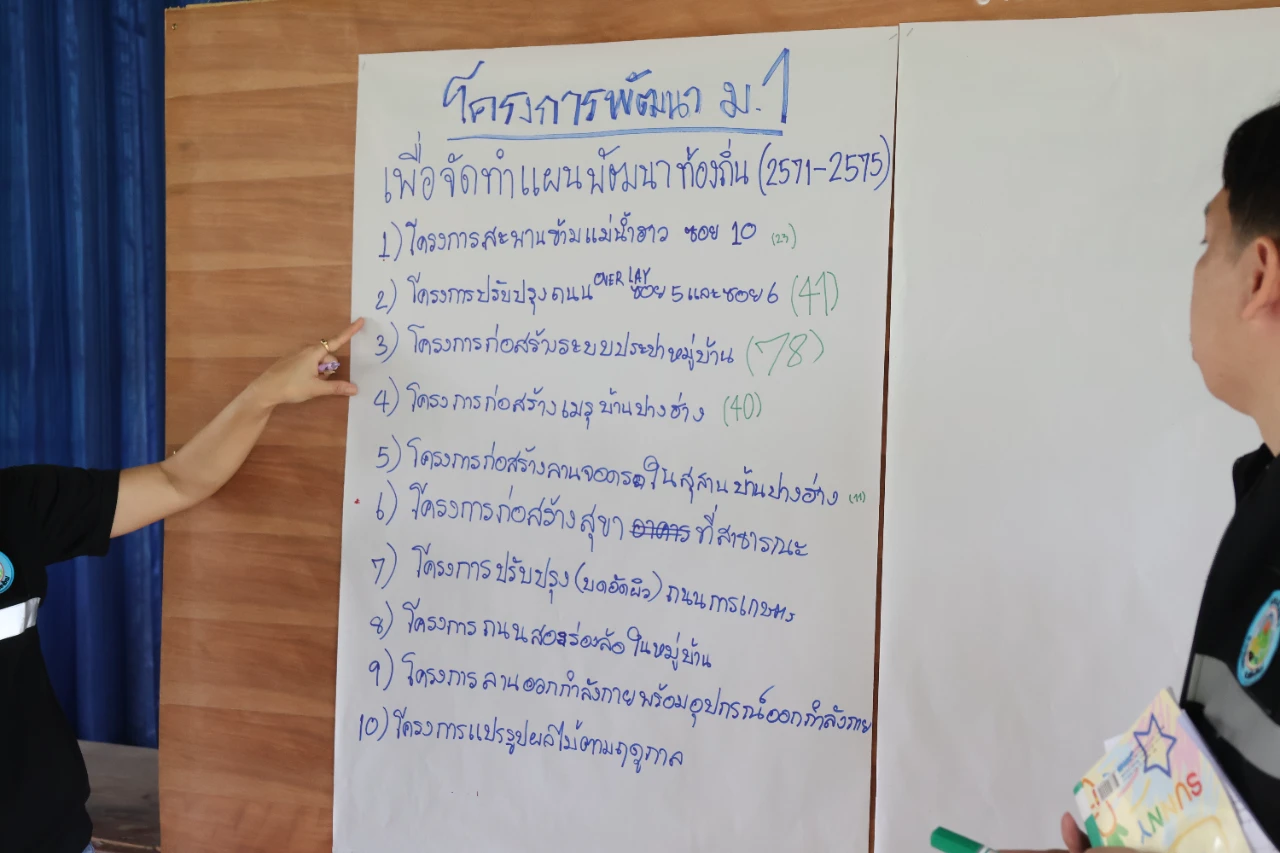 โครงการพัฒนา ม.1
เพื่อจัดทำแผนพัฒนาท้องถิ่น (2571-2575)
1) โครงการสะพานข้ามแม่น้ำฮาว ซอย 10
2) โครงการปรับปรุงถนน OVER LAY ซอย 5 และซอย 6 (41)
3) โครงการก่อสร้างระบบประปาหมู่บ้าน (78)
4) โครงการก่อสร้างเมรุบ้านปางฮ่าง (40)
5) โครงการก่อสร้างลานจอดรถในสุสานบ้านปางฮ่าง (11)
6) โครงการก่อสร้างสุขา อาคาร ที่สาธารณะ
7) โครงการปรับปรุง (บดอัดผิว) ถนนการเกษตร
8) โครงการถนนสองร่องล้อในหมู่บ้าน
9) โครงการลานออกกำลังกายพร้อมอุปกรณ์ออกกำลังกาย
10) โครงการแปรรูปผลไม้ตามฤดูกาล
SUNNY